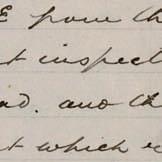 from th
t inspect
nd. and th
t which